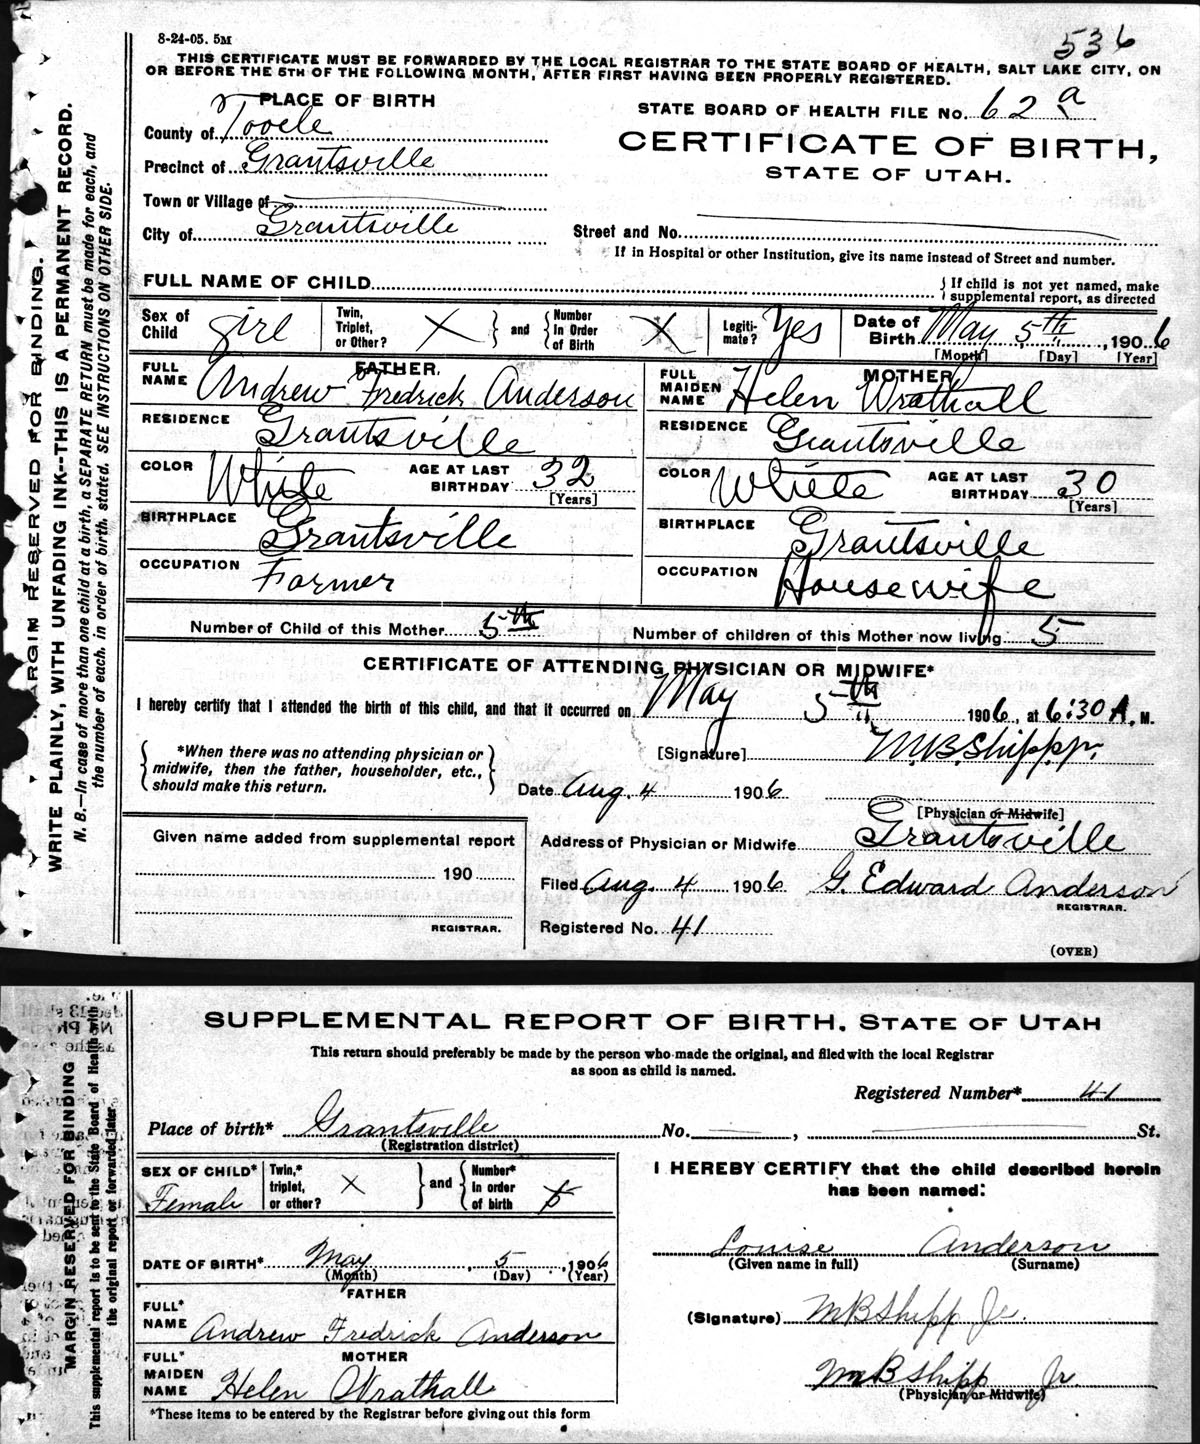 8-24-05. 5M
536
THIS CERTIFICATE MUST BE FORWARDED BY THE LOCAL REGISTRAR TO THE STATE BOARD OF HEALTH, SALT LAKE CITY, ON
OR BEFORE THE 5TH OF THE FOLLOWING MONTH, AFTER FIRST HAVING BEEN PROPERLY REGISTERED.
MARGIN RESERVED FOR BINDING.
WRITE PLAINLY, WITH UNFADING INK--THIS IS A PERMANENT RECORD.
N. B.—In case of more than one child at a birth, a SEPARATE RETURN must be made for each, and
the number of each, in order of birth, stated. SEE INSTRUCTIONS ON OTHER SIDE.
PLACE OF BIRTH
STATE BOARD OF HEALTH FILE No. 62 a
County of Tooele
CERTIFICATE OF BIRTH,
Precinct of Grantsville
STATE OF UTAH.
Town or Village of
City of Grantsville
Street and No.
If in Hospital or other Institution, give its name instead of Street and number.
FULL NAME OF CHILD
If child is not yet named, make
supplemental report, as directed
Sex of Child girl Twin, Triplet, or Other? X and Number In Order of Birth X Legiti-mate? Yes Date of Birth May 5th, 1906
[Month] [Day] [Year]
FATHER. MOTHER
FULL NAME Andrew Fredrick Anderson FULL MAIDEN NAME Helen Wrathall
RESIDENCE Grantsville RESIDENCE Grantsville
COLOR White AGE AT LAST BIRTHDAY 32 [Years] COLOR White AGE AT LAST BIRTHDAY 30 [Years]
BIRTHPLACE Grantsville BIRTHPLACE Grantsville
OCCUPATION Farmer OCCUPATION Housewife
Number of Child of this Mother 5th Number of children of this Mother now living 5
CERTIFICATE OF ATTENDING PHYSICIAN OR MIDWIFE*
I hereby certify that I attended the birth of this child, and that it occurred on May 5th 1906, at 6:30 A. M.
*When there was no attending physician or
midwife, then the father, householder, etc.,
should make this return.
[Signature] M.B. Shipp Jr.
Date Aug. 4 1906
[Physician or Midwife]
Given name added from supplemental report
190
REGISTRAR.
Address of Physician or Midwife Grantsville
Filed Aug. 4 1906 G. Edward Anderson
REGISTRAR.
Registered No. 41
(OVER)
MARGIN RESERVED FOR BINDING
This supplemental report is to be sent to the State Board of Health with
the original report or forwarded later
SUPPLEMENTAL REPORT OF BIRTH. STATE OF UTAH
This return should preferably be made by the person who made the original, and filed with the local Registrar
as soon as child is named.
Registered Number* 41
Place of birth* Grantsville No. , St.
(Registration district)
SEX OF CHILD* Female Twin,* triplet, or other? X and Number* In order of birth
I HEREBY CERTIFY that the child described herein
has been named:
DATE OF BIRTH* May, 5, 1906
(Month) (Day) (Year)
Louise Anderson
(Given name in full) (Surname)
FATHER
FULL* NAME Andrew Fredrick Anderson
(Signature) MB Shipp Jr.
MOTHER
FULL* MAIDEN NAME Helen Wrathall
MB Shipp Jr
(Physician or Midwife)
*These items to be entered by the Registrar before giving out this form